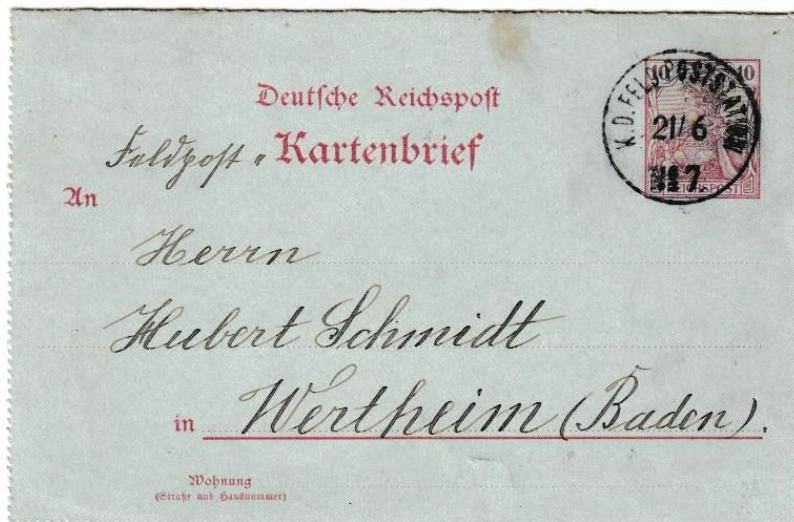 Deutsche Reichspost
Feldpost - Kartenbrief
10 10
K.D. FELD-POSTSTATION
21/6
№ 7.
REICHSPOST
An
Herrn
Hubert Schmidt
in Wertheim (Baden).
Wohnung
(Straße und Hausnummer)